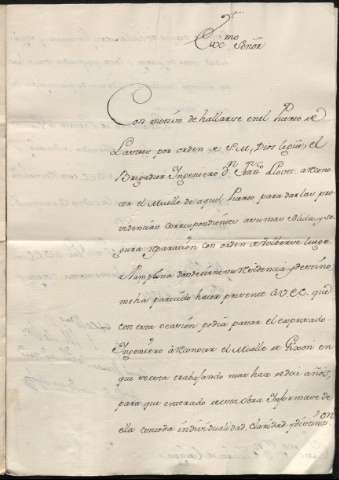 Exc.mo Señor
Con motivo de hallarse en el Puerto de
por orden de S.M. (Dios le gûe) el
Brigadier Ingeniero d.n Fran.co Llovet a
cer el Muelle de aquel Puerto para dar las pro
videncias correspondientes
reparacion con orden de bolberse luego
Pamplona donde tiene su residencia, y destino,
me ha parecido hacer presente a V.E. que
con esta ocasión podia pasar el expresado
Ingeniero a reconocer el Muelle de Gixon en
que se esta trabajando mas ha de diez años,
para que enterado de esta obra informase de
ella con toda individualidad, claridad, y distincion